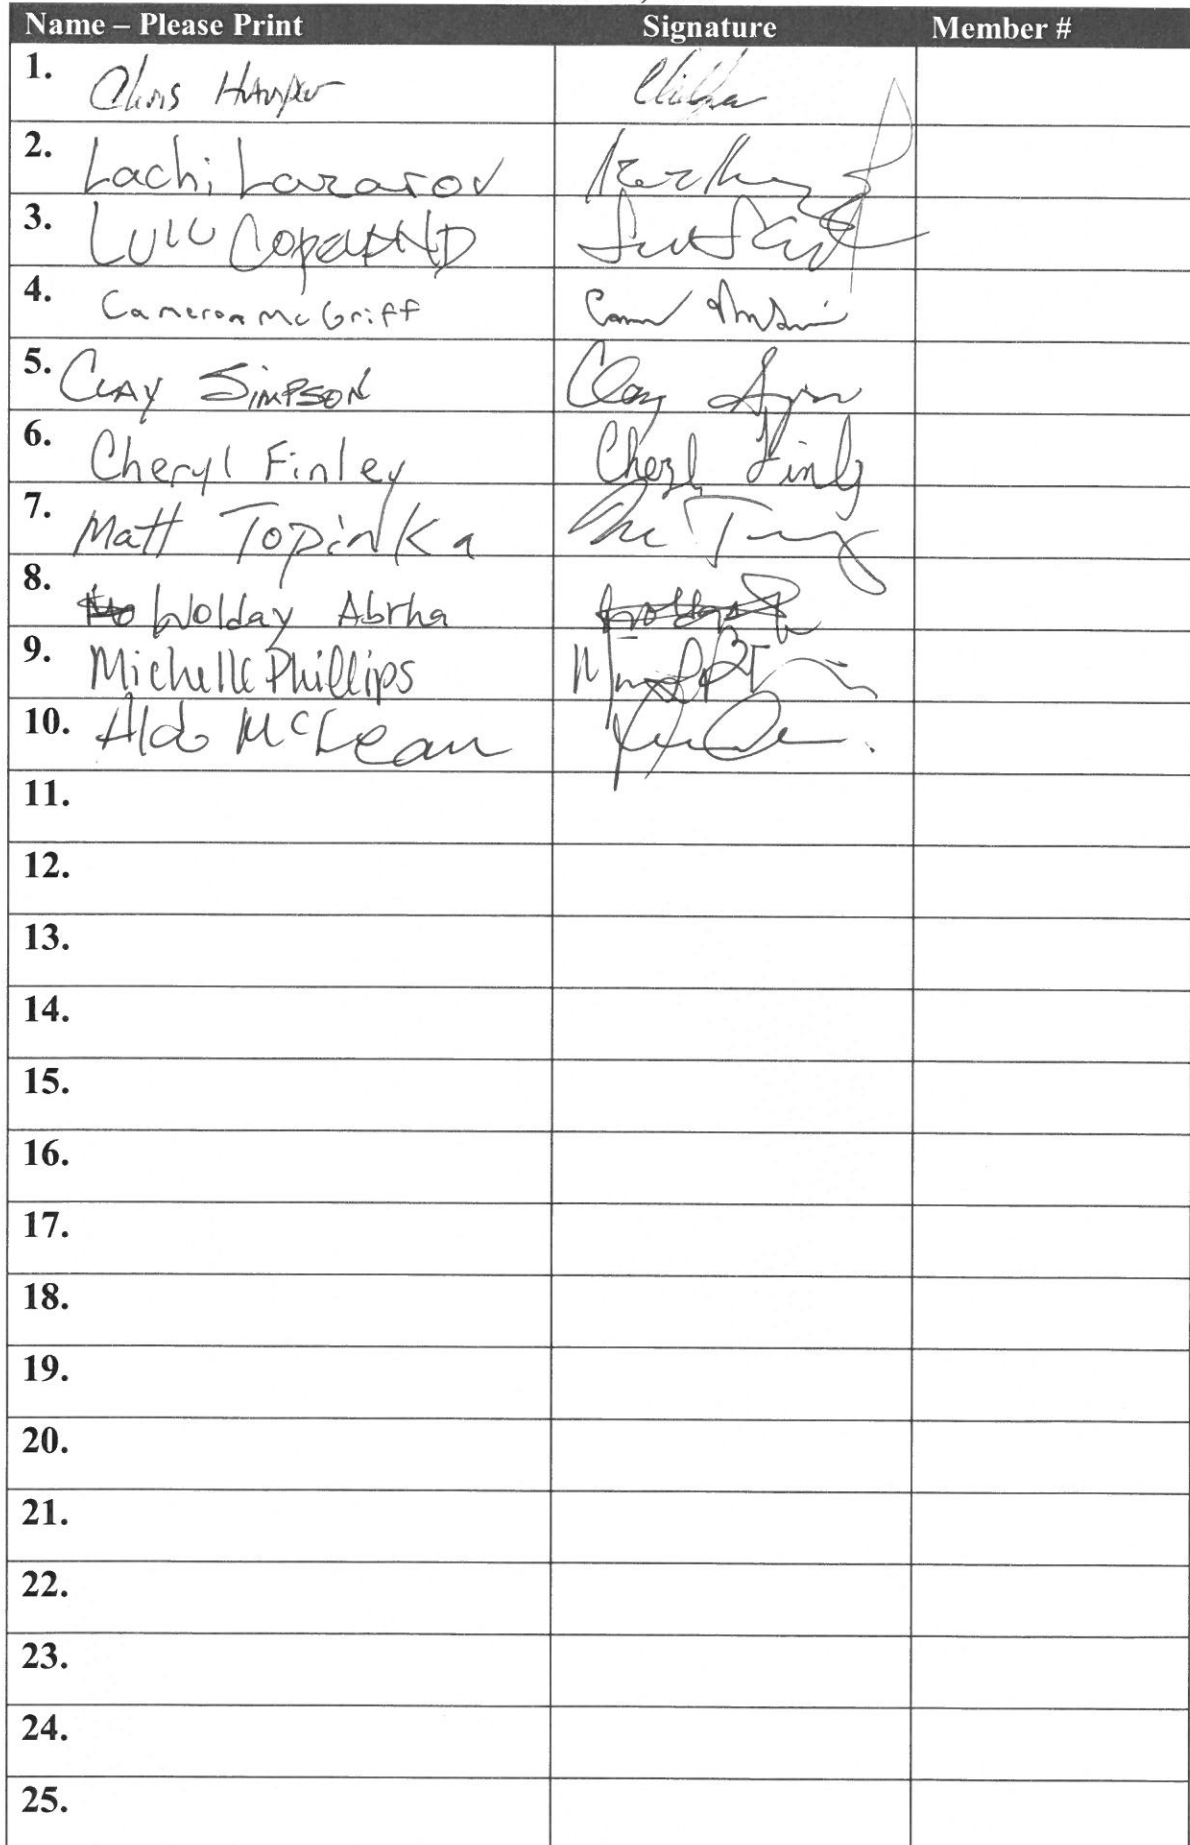 Name – Please Print Signature Member #
1. Chris Harper
2. Lachi Lazarov
3. Lulu Copeland
4. Cameron McGriff
5. Clay Simpson Clay
6. Cheryl Finley Cheryl Finley
7. Matt Topinka
8. Wolday Abrha
9. Michelle Phillips
10. Aldo McLean
11.
12.
13.
14.
15.
16.
17.
18.
19.
20.
21.
22.
23.
24.
25.